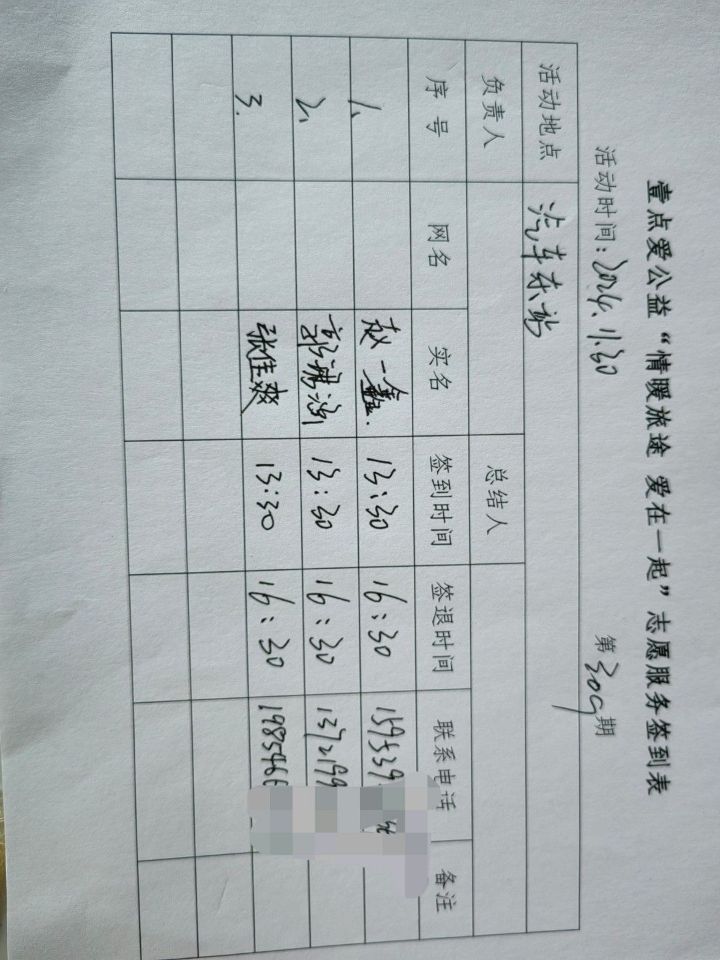 壹点爱公益“情暖旅途 爱在一起”志愿服务签到表
活动时间:2024.11.30 第309期
活动地点 汽车东站
负责人 总结人
序号 网名 实名 签到时间 签退时间 联系电话 备注
1、 赵一鑫. 13:30 16:30 159539
2、 13:30 16:30 1372199
3. 张佳爽 13:30 16:30 1985466